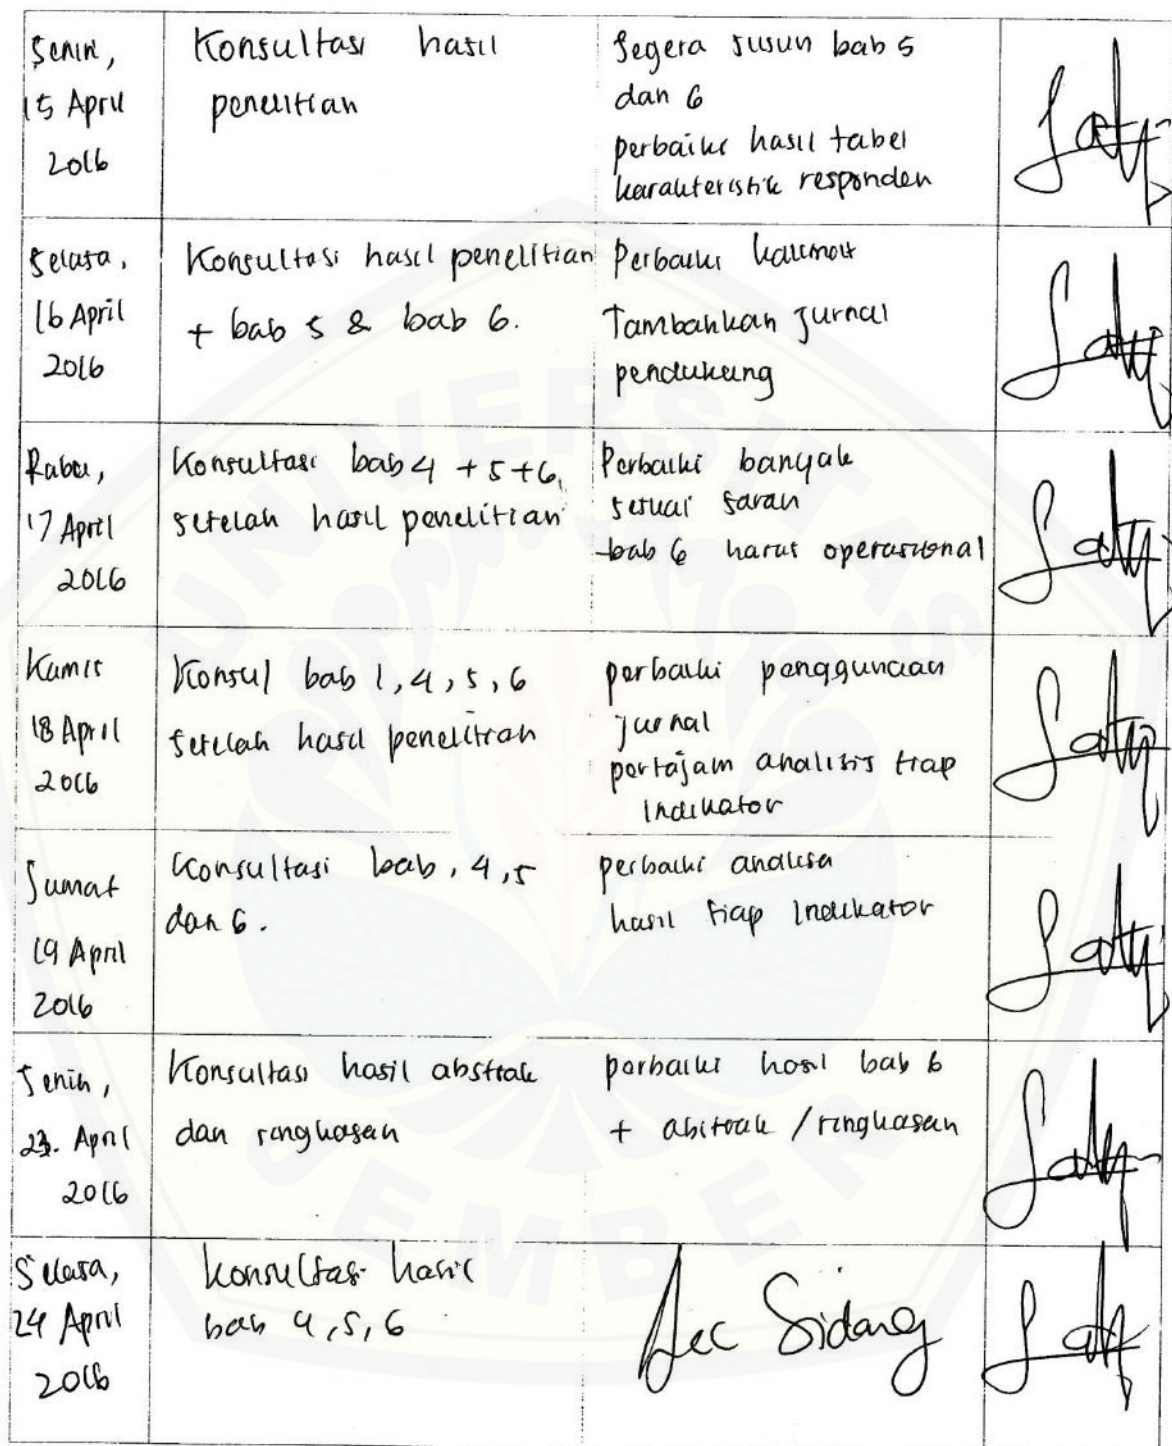 Senin,
15 April
2016
Konsultasi hasil
penelitian
Segera susun bab 5
dan 6
perbaiki hasil tabel
karakteristik responden
Selasa,
16 April
2016
Konsultasi hasil penelitian
+ bab 5 & bab 6.
Perbaiki kalimat
Tambahkan jurnal
pendukung
Rabu,
17 April
2016
Konsultasi bab 4 + 5 + 6
setelah hasil penelitian
Perbaiki banyak
sesuai saran
bab 6 harus operasional
Kamis
18 April
2016
Konsul bab 1, 4, 5, 6
setelah hasil penelitian
perbaiki penggunaan
jurnal
pertajam analisis tiap
indikator
Jumat
19 April
2016
Konsultasi bab, 4, 5
dan 6.
perbaiki analisa
hasil tiap indikator
Senin,
23. April
2016
Konsultasi hasil abstrak
dan ringkasan
perbaiki hasil bab 6
+ abstrak / ringkasan
Selasa,
24 April
2016
Konsultasi hasil
bab 4, 5, 6
Acc Sidang
UNIVERSITAS
JEMBER